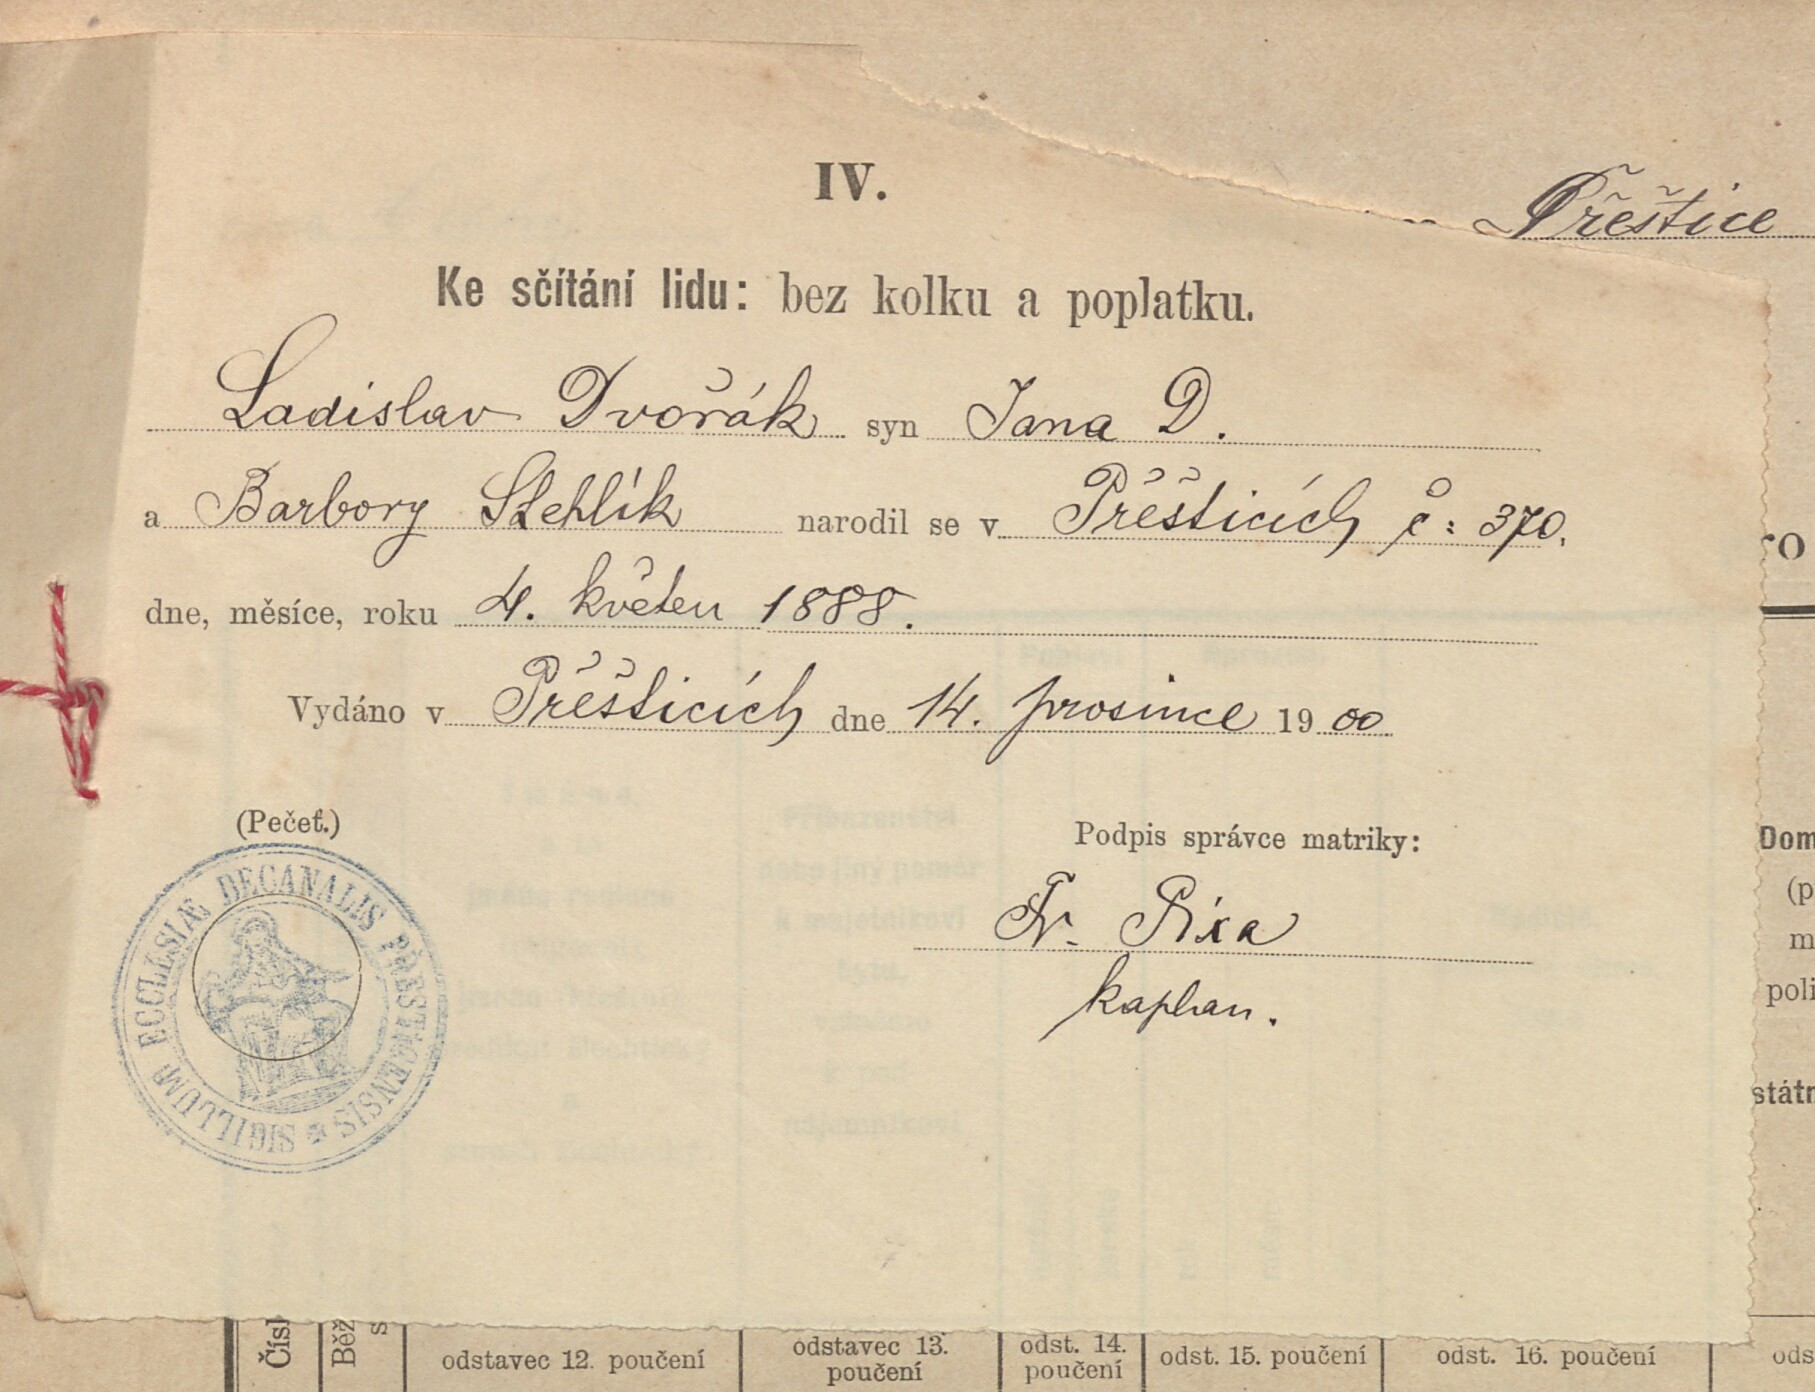 IV.
Přeštice
Ke sčítání lidu: bez kolku a poplatku.
Ladislav Dvořák syn Jana D.
a Barbory Stehlík narodil se v Přěšticích č: 370.
dne, měsíce, roku 4. květen 1888.
Vydáno v Přěšticích dne 14. prosince 1900
(Pečeť.)
Podpis správce matriky:
SIGILLUM ECCLESIÆ DECANALIS PRESTICENSIS
Fr. Pixa
kaplan.
ro
Dom
(p
m
poli
státn
Čísl
Běž
s
odstavec 12. poučení
odstavec 13.
poučení
odst. 14.
poučení
odst. 15. poučení
odst. 16. poučení
ods